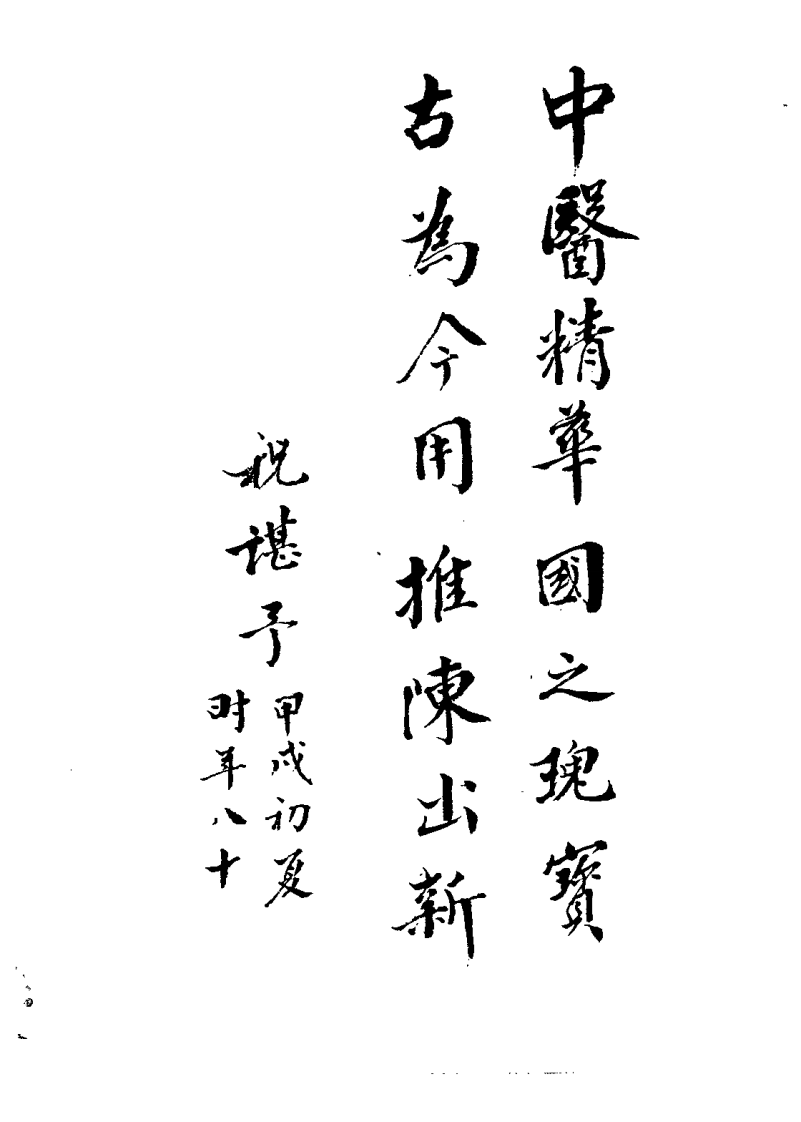 中醫精華國之瑰寳
古為今用推陳出新
祝諶予
甲戌初夏
时年八十